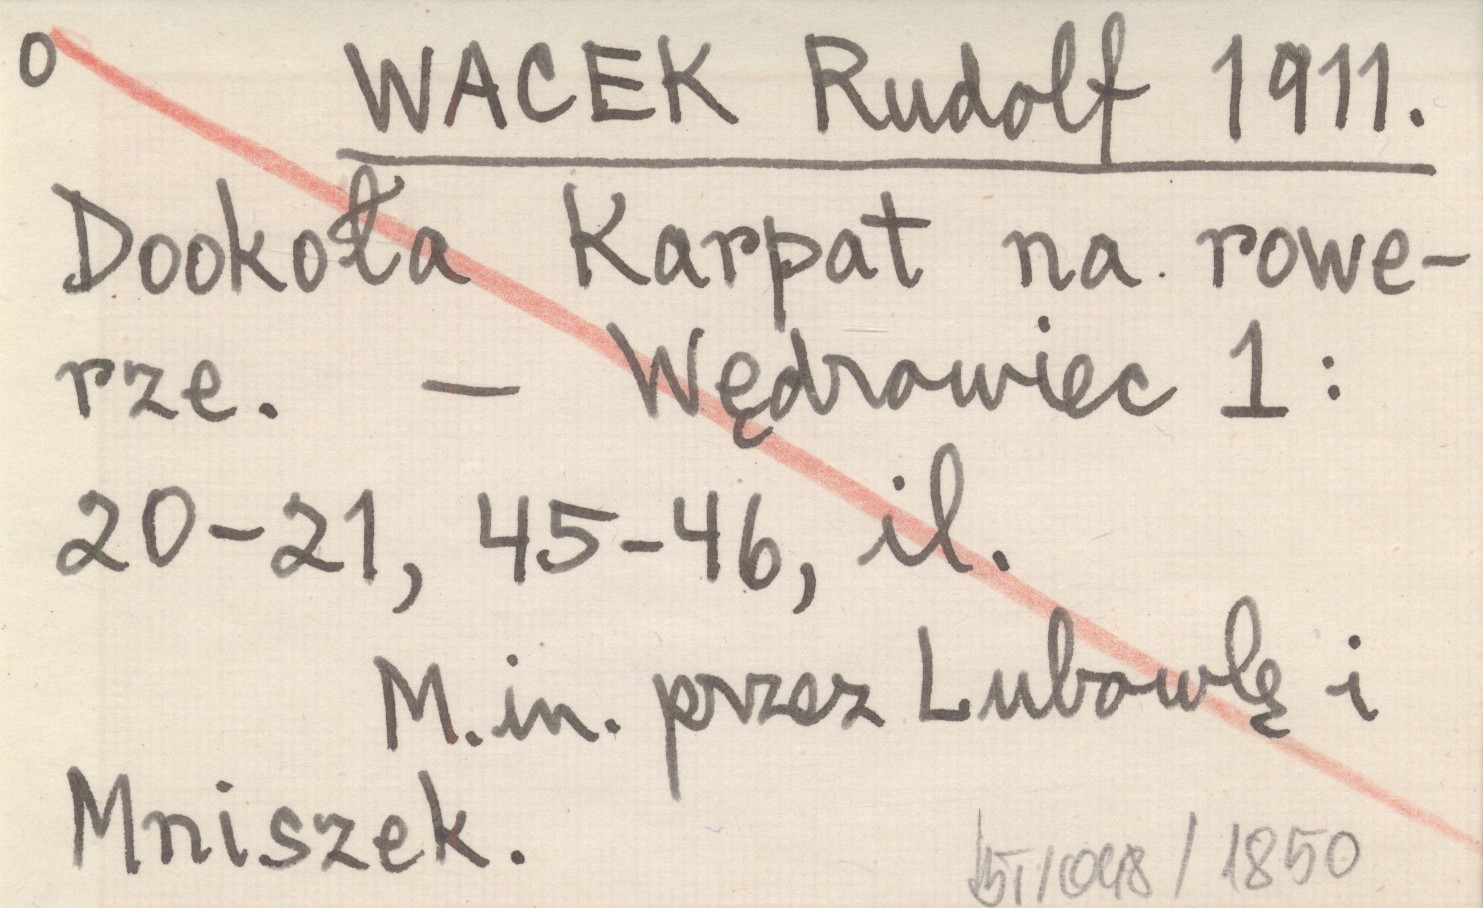 O WACEK Rudolf 1911.
Dookoła Karpat na rowe-
rze. — Wędrowiec 1:
20-21, 45-46, il.
M.in. przez Lubowlę i
Mniszek.
/ 1850